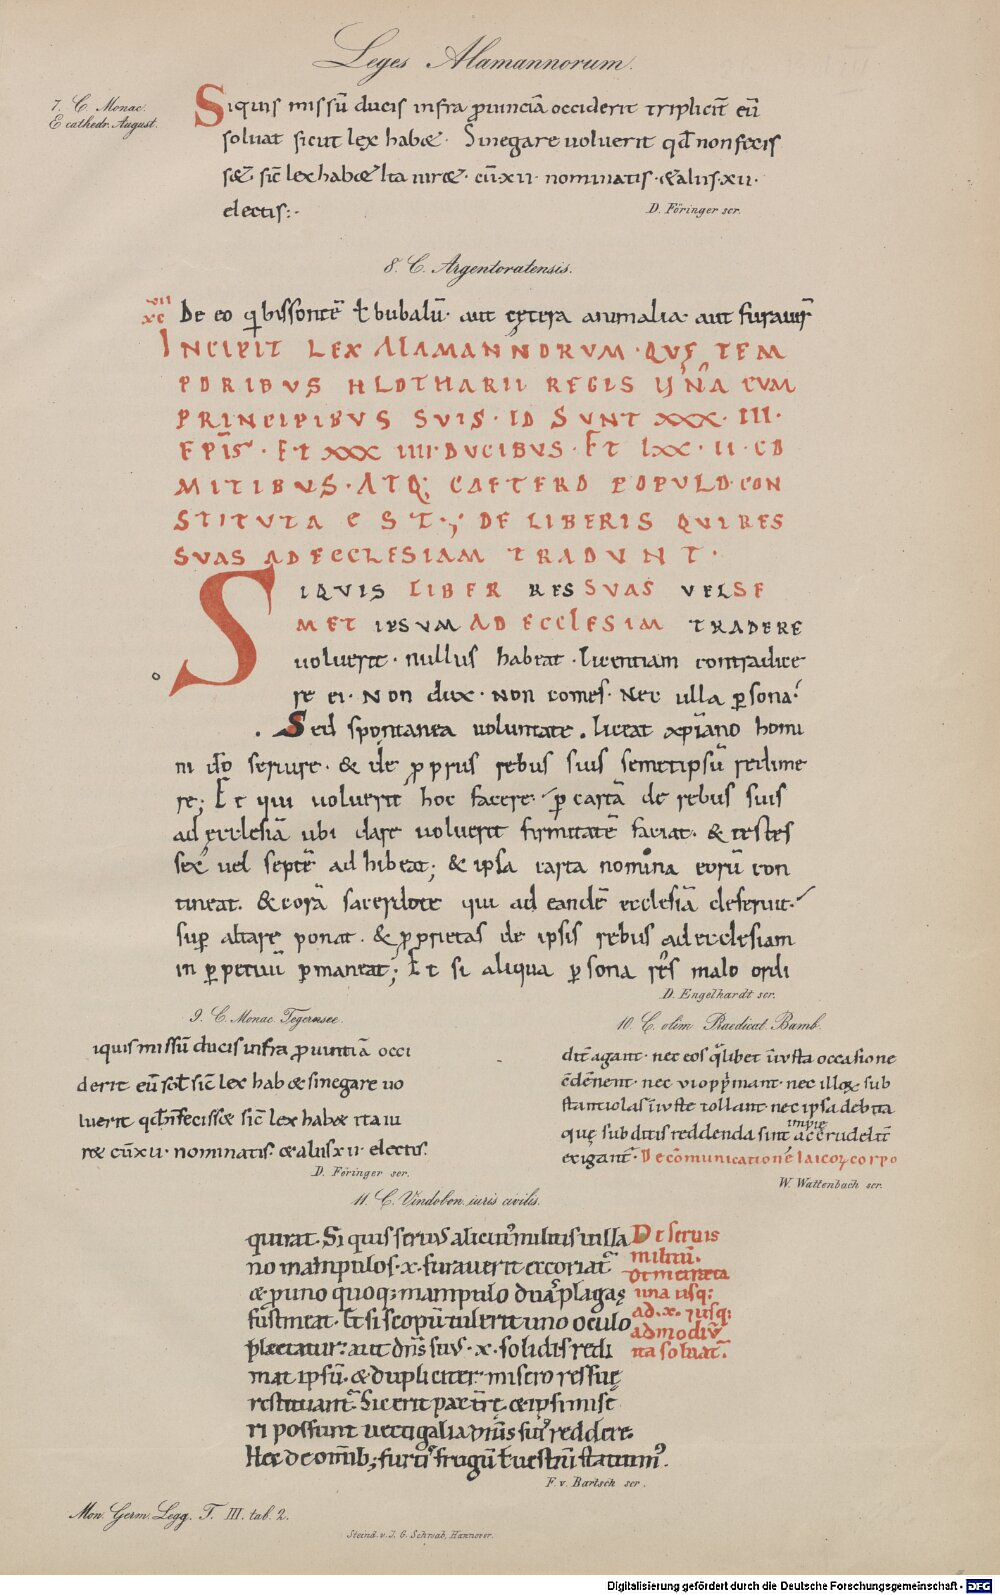 Leges Alamannorum.
7. C. Monac.
E cathedr. August.
Siquis missū ducis infra ꝓuinciā occiderit triplicit̄ eū
soluat sicut lex habæ · Sinegare uoluerit qđ non fecis
sæ · sic̄ lex habæ Ita iuræ · cū·xii· nominatis · & aliis·xii·
electis:·
D. Föringer scr.
8. C. Argentoratensis.
vii
xc De eo q̇ bissontē ł bubalū· aut cętera animalia· aut furauer̄
INCIPIT LEX ALAMANNORVM · QVĘ TEM
PORIBVS HLOTHARII REGIS VNA CVM
PRINCIPIBVS SVIS · ID SVNT XXX · III ·
EPIS · ET XXX IIII DVCIBVS · ET LXX · II · CO
MITIBVS · ATQ; CAETERO POPVLO CON
STITVTA EST ·; DE LIBERIS QVI RES
SVAS AD ECCLESIAM TRADVNT ·
SIQVIS LIBER RES SVAS VEL SE
MET IPSVM AD ECCLESIAM TRADERE
uoluerit · nullus habeat · licentiam contradice
re ei · Non dux · non comes · Nec ulla ꝑsona·
. Sed spontanea voluntate . liceat xpīano homi
ni dō seruire · & de ꝓpriis rebus suis semetipsū redime
re; Et qui uoluerit hoc facere· ꝑ cartā de rebus suis
ad ęcclesiā ubi dare uoluerit firmitatē faciat · & testes
sex uel septē adhibeat; & ipsa carta nomina eorū con
tineat. & corā sacerdote qui ad eandē ecclesiā deseruit·
suꝑ altare ponat · & ꝓprietas de ipsis rebus ad ecclesiam
in ꝑpetuū ꝑmaneat; Et si aliqua ꝑsona res malo ordi
D. Engelhardt scr.
9. C. Monac. Tegernsee.
iquis missū ducis infra ꝓuintiā occi
derit eū soł sic̄ lex habæ sinegare uo
luerit qđ n̄ fecissæ sic̄ lex habæ ita iu
ræ cū xii · nominatis · & aliis xii · electis.
D. Föringer scr.
10. C. olim Praedicat. Bamb.
dit̄ agant · nec eos q̄libet iīusta occasione
cōdēnent · nec vi oppͥmant · nec illoꝝ sub
stantiolas iīuste tollant · nec ipsa debita
quę subditis reddenda sint
impie
ac crudelit̄
exigant · De cōmunicationē laicoꝝ corpo
W. Wattenbach scr.
11. C. Vindobon. iuris civilis.
quirat · Si quis seruus alicui' militis in illa
no manipulos · x · furauerit excoriat᷑
æ ꝓ uno quoq; manipulo duas plagas
sustineat · Et si scopū tulerit uno oculo
plectatur: aut dn̄s suus · x · solidis redi
mat ipsū · & dupliciter misero res suę
restituant᷑. Sic erit pax int̄re & ipsi mise
ri possunt uectigalia dn̄is suis reddere·
Hec de omib; furtis frugū ł uestrū statuim'.
De seruis
militū.
una usq;
ad · x · ⁊ usq;
ad modiū
ita soluat᷑.
F. v. Bartsch scr.
Mon. Germ. Legg. T. III. tab. 2.
Steind. v. J. G. Schwab, Hannover.
Digitalisierung gefördert durch die Deutsche Forschungsgemeinschaft - DFG